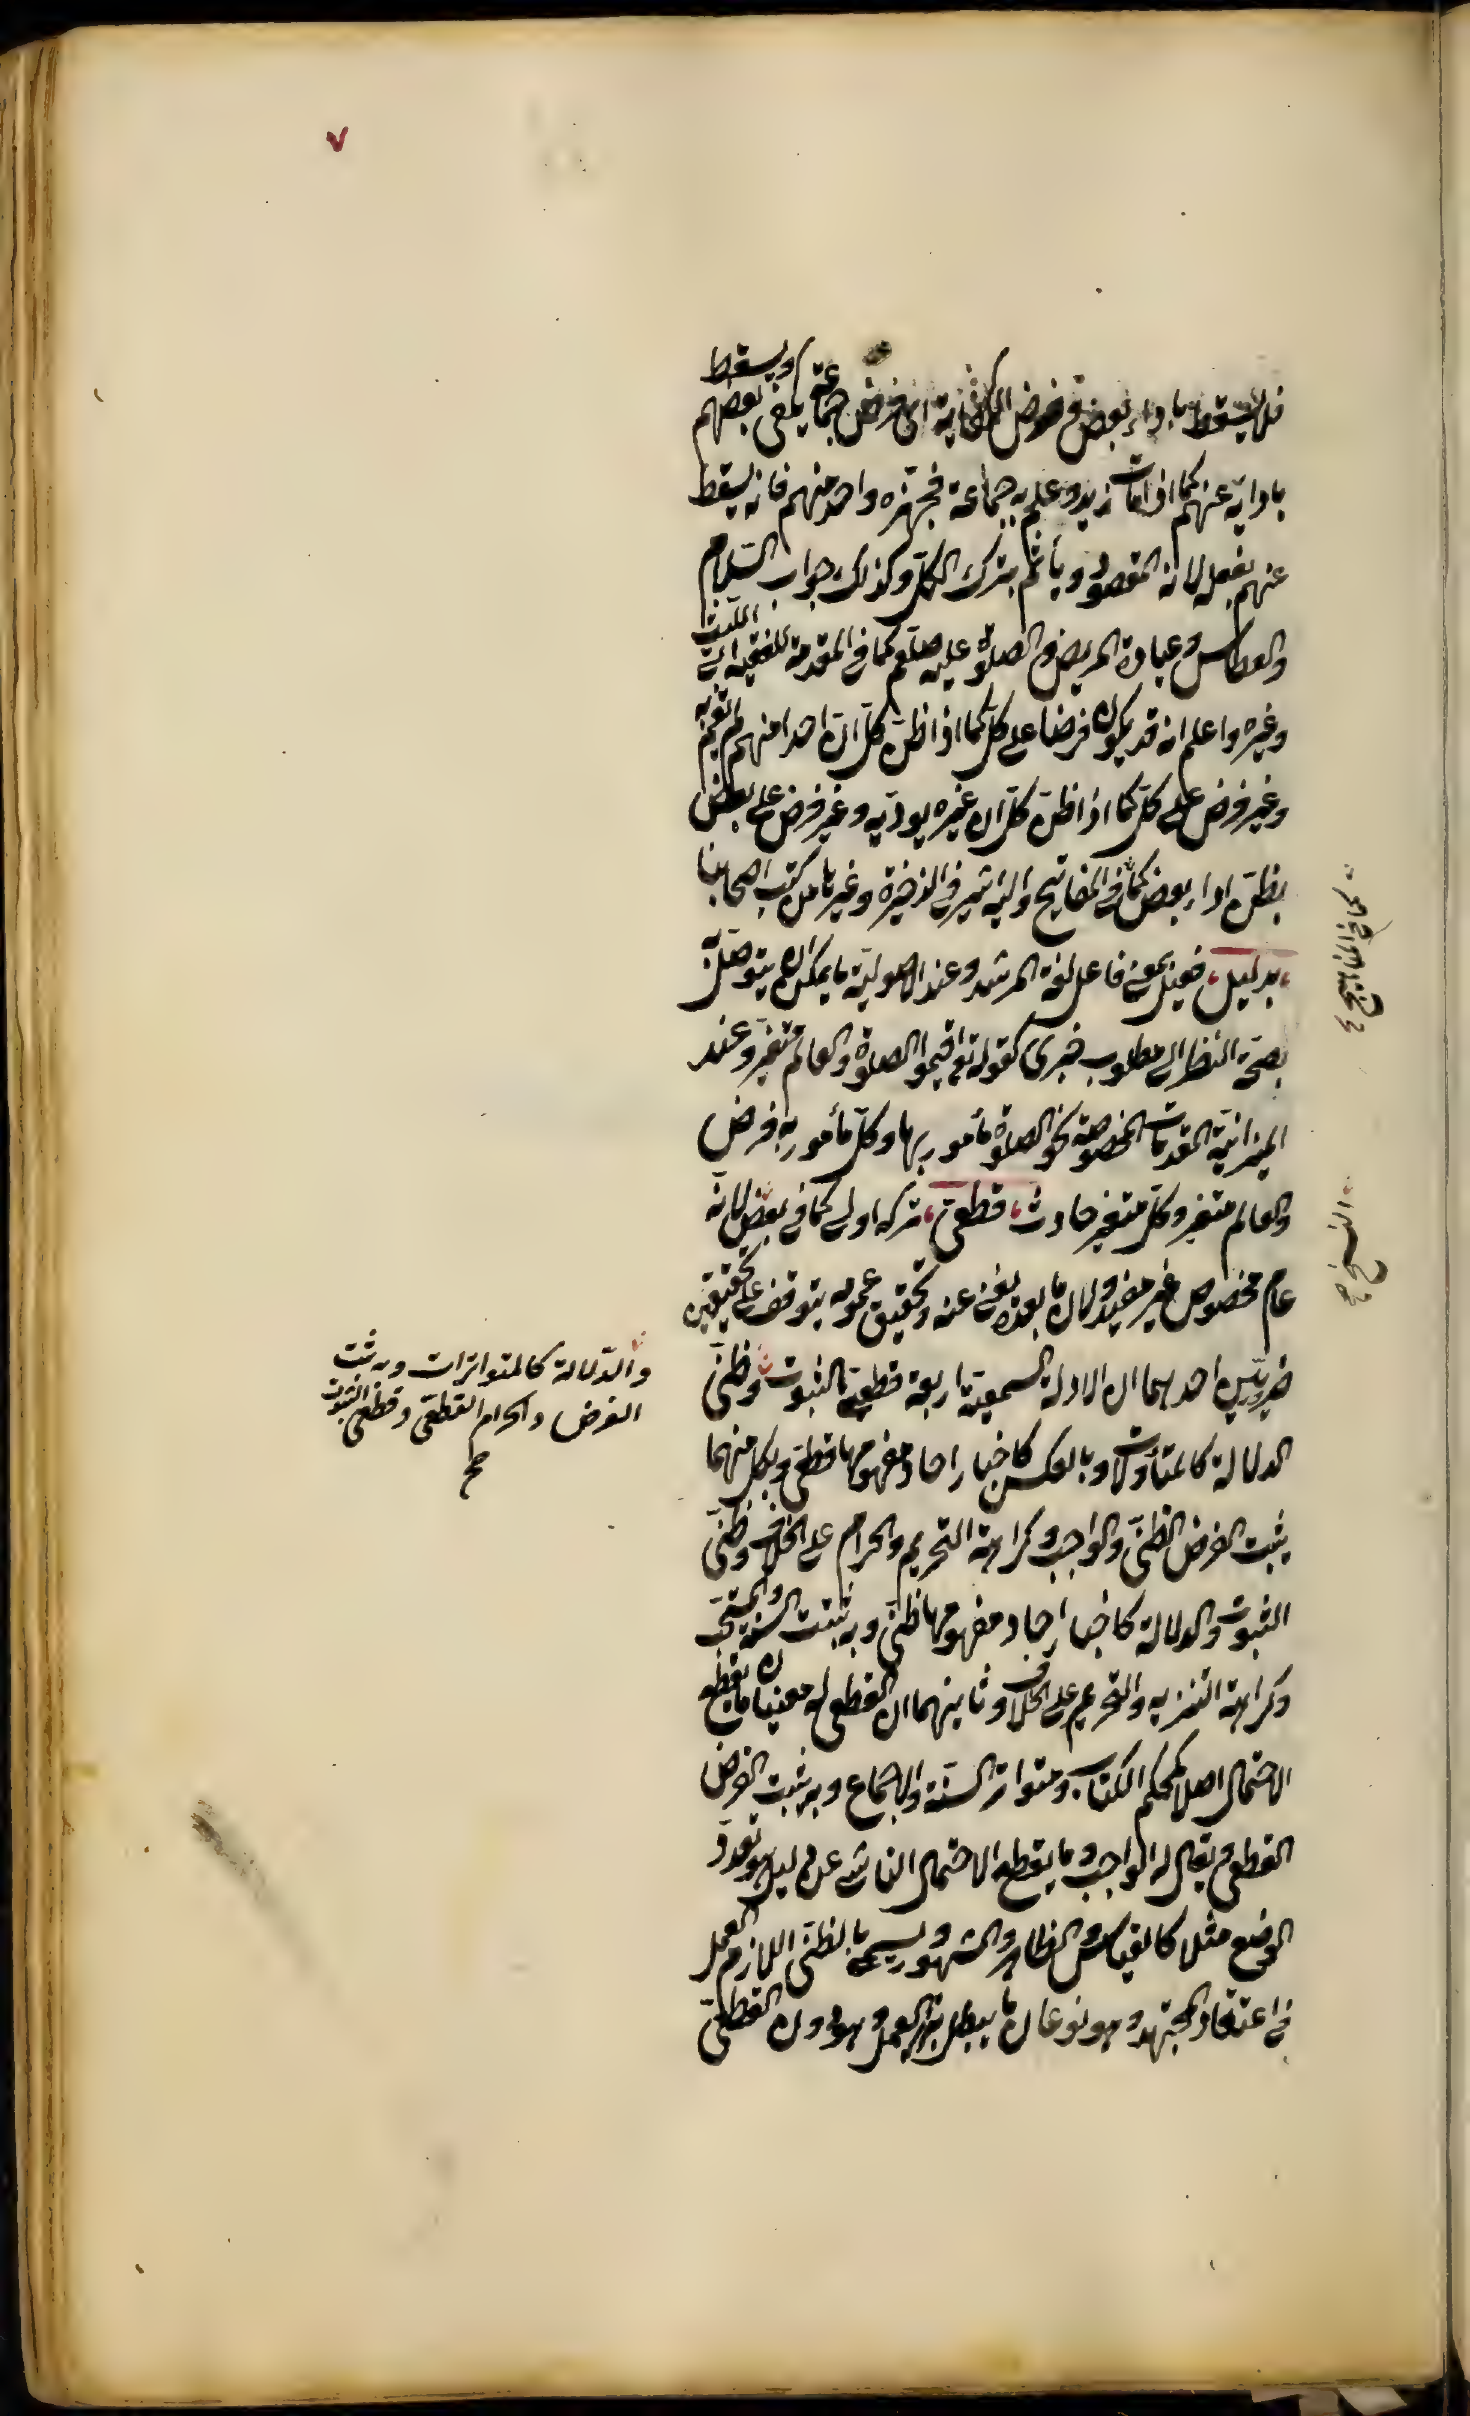 ٧
فلا يسقط باداء بعض وفرض الكفاية اى فرض جماعة يكفى بعضهم ويسقط
بادايه عنهم كما اذا مات زيد وعلم به جماعة فجهزه واحد منهم فانه يسقط
عنهم بفعله لانه المقصود ويأثم بترك الكل وكذلك جواب السلام
والعطاس وعيادة المريض والصلوة عليه صلعم كما فى المقدمة للفقيه ابى الليث
وغيره واعلم انه قد يكون فرضا على كل كما اذا ظن كل ان احدا منهم لم يقم به
وغير فرض على كل كما اذا ظن كل ان غيره يوديه وغير فرض على بعض
بظن اداء بعض كما فى المفاتيح واليه اشير فى الذخيرة وغيرها من كتب اصحابنا
بدليل فعيل بمعنى فاعل لغة المرشد وعند الاصولية ما يمكن ان يتوصل
بصحة النظر الى مطلوب خبرى كقوله تع اقيموا الصلوة والعالم متغير وعند
الميزانية المقدمات المخصوصة نحو الصلوة مأمور بها وكل مأمور به فرض
والعالم متغير وكل متغير حادث قطعى تركه اولى كما فى بعض لانه
عام مخصوص غير مفيد ولان ما بعده يغنى عنه وتحقيق عمومه يتوقف على تحقيقين
ضروريين احدهما ان الادلة السمعية اربعة قطعية الثبوت وظنى
الدلالة كالمتأولات وبالعكس كاخبار احاد مفهومها قطعى وبكل منهما
يثبت الفرض الظنى والواجب وكراهة التحريم والحرام على الخلاف وظنى
الثبوت والدلالة كاخبار احاد مفهومها ظنى وبه تثبت السنة والمستحب
وكراهة التنزيه والتحريم على الخلاف وثانيهما ان القطعى له معنيان ما يقطع
الاحتمال اصلا كمحكم الكتاب ومتواتر السنة والاجماع وبه يثبت الفرض
القطعى ويقال له الواجب وما يقطع الاحتمال الناشى عن دليل هو تعدد
الوضع مثلا كالقياس والظاهر والمشهور ويسمى بالظنى اللازم العمل
فى اعتقاد المجتهد وهو نوعان ما يبطل بتركه العمل وهو دون القطعى
والدلالة كالمتواترات وبه يثبت
الفرض والحرام القطعى وقطعى الثبوت
صح
النسخ صح